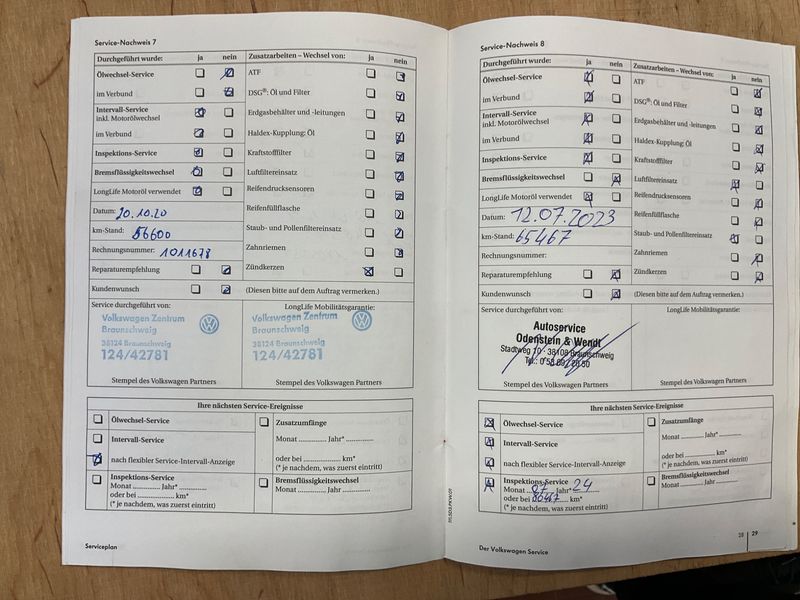 Service-Nachweis 7
Durchgeführt wurde: ja nein
Ölwechsel-Service
im Verbund
Intervall-Service
inkl. Motorölwechsel
im Verbund
Inspektions-Service
Bremsflüssigkeitswechsel
LongLife Motoröl verwendet
Datum: 20.10.20
km-Stand: 56600
Rechnungsnummer: 1011678
Reparaturempfehlung
Kundenwunsch
Zusatzarbeiten – Wechsel von: ja nein
ATF
DSG®: Öl und Filter
Erdgasbehälter und -leitungen
Haldex-Kupplung: Öl
Kraftstofffilter
Luftfiltereinsatz
Reifendrucksensoren
Reifenfüllflasche
Staub- und Pollenfiltereinsatz
Zahnriemen
Zündkerzen
(Diesen bitte auf dem Auftrag vermerken.)
Service durchgeführt von:
Volkswagen Zentrum
Braunschweig
38124 Braunschweig
124/42781
Stempel des Volkswagen Partners
LongLife Mobilitätsgarantie:
Volkswagen Zentrum
Braunschweig
38124 Braunschweig
124/42781
Stempel des Volkswagen Partners
Ihre nächsten Service-Ereignisse
Ölwechsel-Service
Intervall-Service
nach flexibler Service-Intervall-Anzeige
Inspektions-Service
Monat ............ Jahr* ............
oder bei ............ km*
(* je nachdem, was zuerst eintritt)
Zusatzumfänge
Monat ............ Jahr* ............
oder bei ............ km*
(* je nachdem, was zuerst eintritt)
Bremsflüssigkeitswechsel
Monat ............ Jahr ............
Serviceplan
Service-Nachweis 8
Durchgeführt wurde: ja nein
Ölwechsel-Service
im Verbund
Intervall-Service
inkl. Motorölwechsel
im Verbund
Inspektions-Service
Bremsflüssigkeitswechsel
LongLife Motoröl verwendet
Datum: 12.07.2023
km-Stand: 65467
Rechnungsnummer:
Reparaturempfehlung
Kundenwunsch
Zusatzarbeiten – Wechsel von: ja nein
ATF
DSG®: Öl und Filter
Erdgasbehälter und -leitungen
Haldex-Kupplung: Öl
Kraftstofffilter
Luftfiltereinsatz
Reifendrucksensoren
Reifenfüllflasche
Staub- und Pollenfiltereinsatz
Zahnriemen
Zündkerzen
(Diesen bitte auf dem Auftrag vermerken.)
Service durchgeführt von:
Autoservice
Odenstein & Wendt
Stadtweg 10 · 38108 Braunschweig
Stempel des Volkswagen Partners
LongLife Mobilitätsgarantie:
Stempel des Volkswagen Partners
Ihre nächsten Service-Ereignisse
Ölwechsel-Service
Intervall-Service
nach flexibler Service-Intervall-Anzeige
Inspektions-Service
Monat 07 Jahr* 24
oder bei km*
(* je nachdem, was zuerst eintritt)
Zusatzumfänge
Monat ............ Jahr* ............
oder bei ............ km*
(* je nachdem, was zuerst eintritt)
Bremsflüssigkeitswechsel
Monat ............ Jahr ............
Der Volkswagen Service
28 29